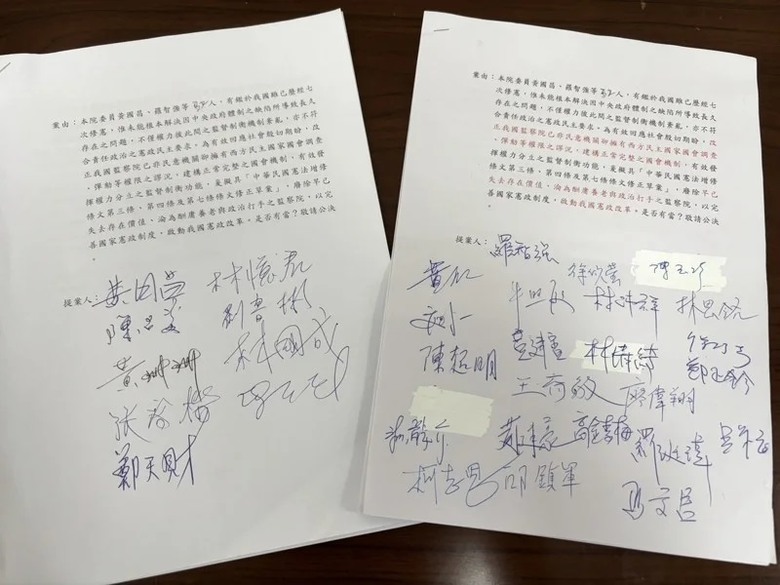 案由：本院委員黃國昌、羅智強等37人，有鑑於我國雖已歷經七
次修憲，惟未能根本解決因中央政府體制之缺陷所導致長久
存在之問題，不僅權力彼此間之監督制衡機制紊亂，亦不符
合責任政治之憲政民主要求。為有效回應社會殷切期盼，改
正我國監察院已非民意機關卻擁有西方民主國家國會調查
、彈劾等權限之謬況，建構正常完整之國會機制，有效發
揮權力分立之監督制衡功能，爰擬具「中華民國憲法增修
條文第三條、第四條及第七條條文修正草案」，廢除早已
失去存在價值、淪為酬庸養老與政治打手之監察院，以完
善國家憲政制度，啟動我國憲政改革。是否有當？敬請公決
。
提案人：黃國昌 林憶君
劉書彬
黃珊珊 林國成
張啓楷
鄭天財
案由：本院委員黃國昌、羅智強等37人，有鑑於我國雖已歷經七
次修憲，惟未能根本解決因中央政府體制之缺陷所導致長久
存在之問題，不僅權力彼此間之監督制衡機制紊亂，亦不符
合責任政治之憲政民主要求。為有效回應社會殷切期盼，改
正我國監察院已非民意機關卻擁有西方民主國家國會調查
、彈劾等權限之謬況，建構正常完整之國會機制，有效發
揮權力分立之監督制衡功能，爰擬具「中華民國憲法增修
條文第三條、第四條及第七條條文修正草案」，廢除早已
失去存在價值、淪為酬庸養老與政治打手之監察院，以完
善國家憲政制度，啟動我國憲政改革。是否有當？敬請公決
。
提案人：羅智強 徐欣瑩
牛煦庭 林沛祥 林思銘
陳超明 黃建賓 林倩綺 鄭正鈐
王育敏 廖偉翔
黃健豪 高金素梅 羅廷瑋
柯志恩 邱鎮軍 馬文君